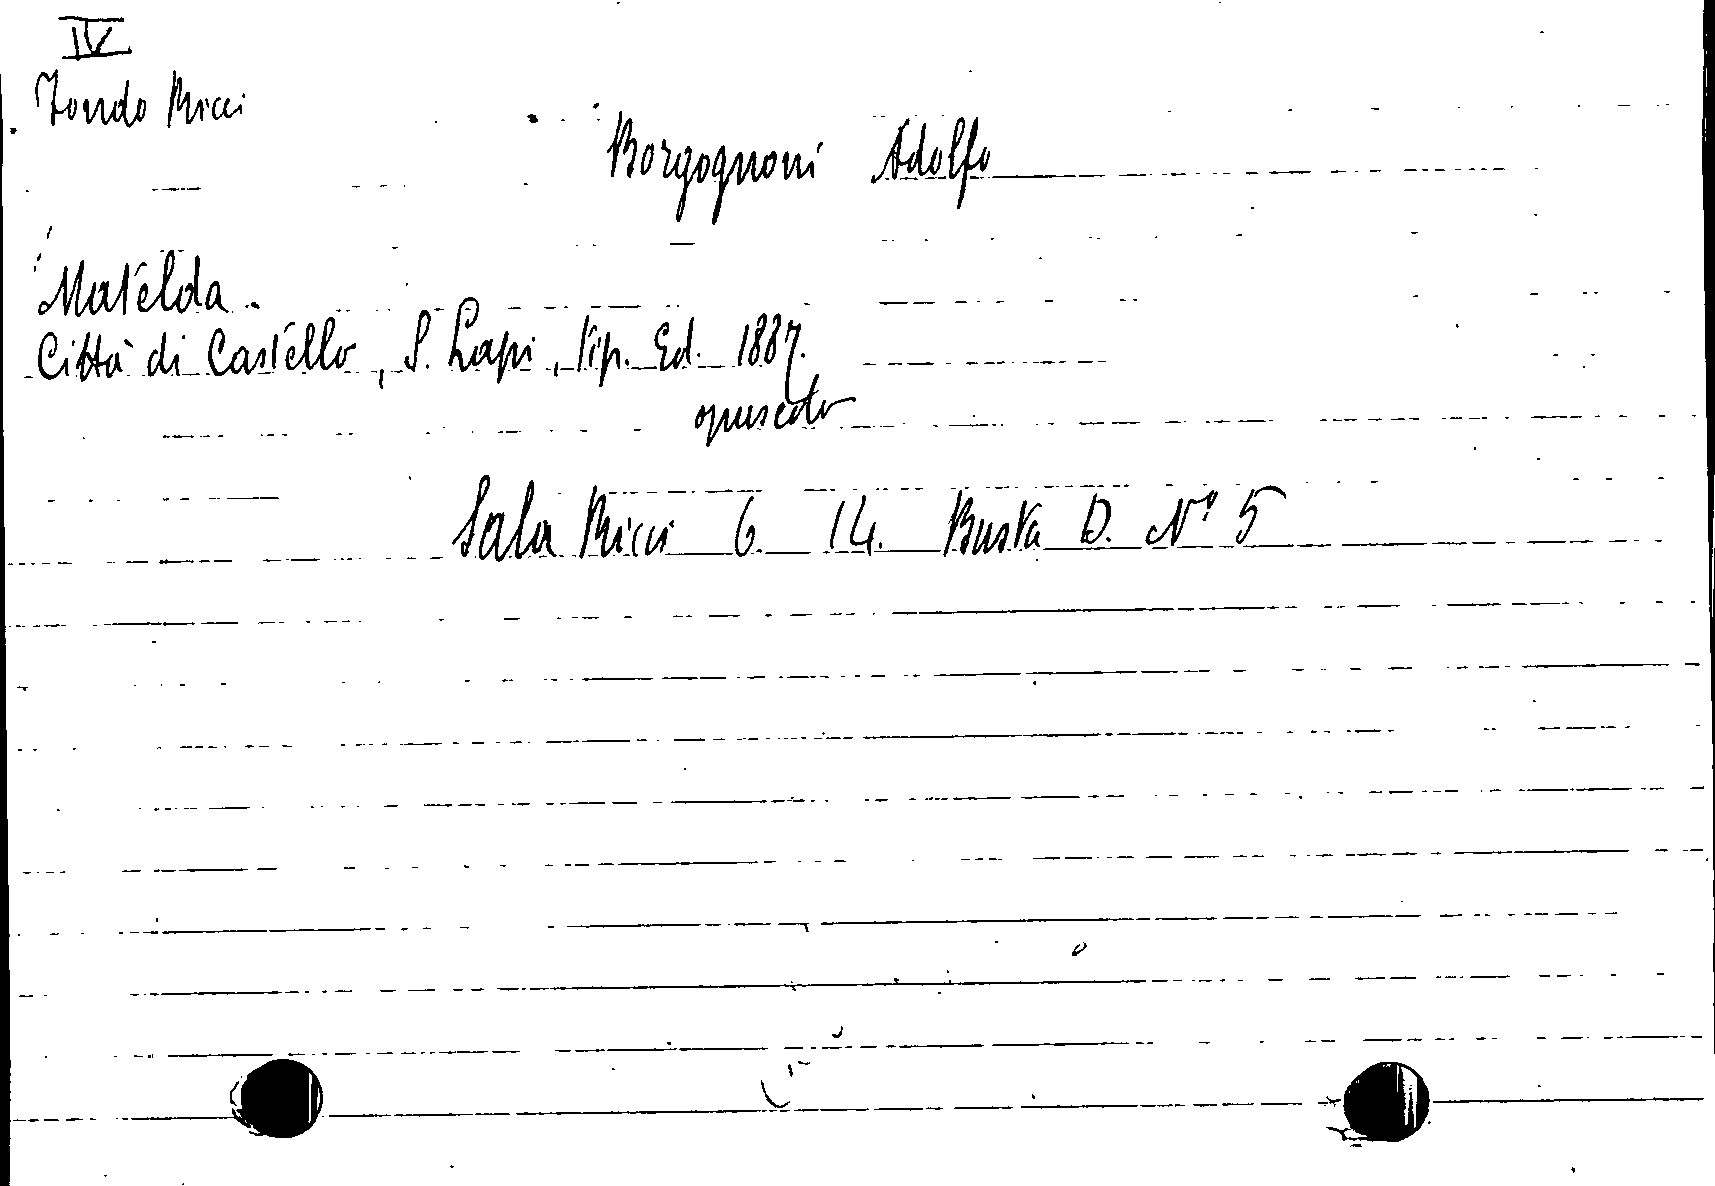 IV
Fondo Ricci
Borgognoni Adolfo
Matelda.
Città di Castello, S. Lapi, tip. Ed. 1887.
opuscolo
Sala Ricci 6. 14. Busta D. N° 5